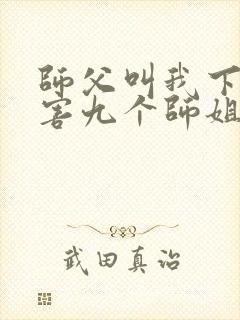 師父叫我下
害九个師姐
武田真治